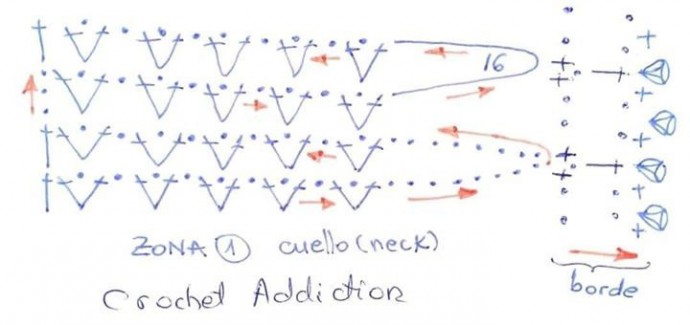 16
ZONA 1 cuello (neck)
borde
Crochet Addiction